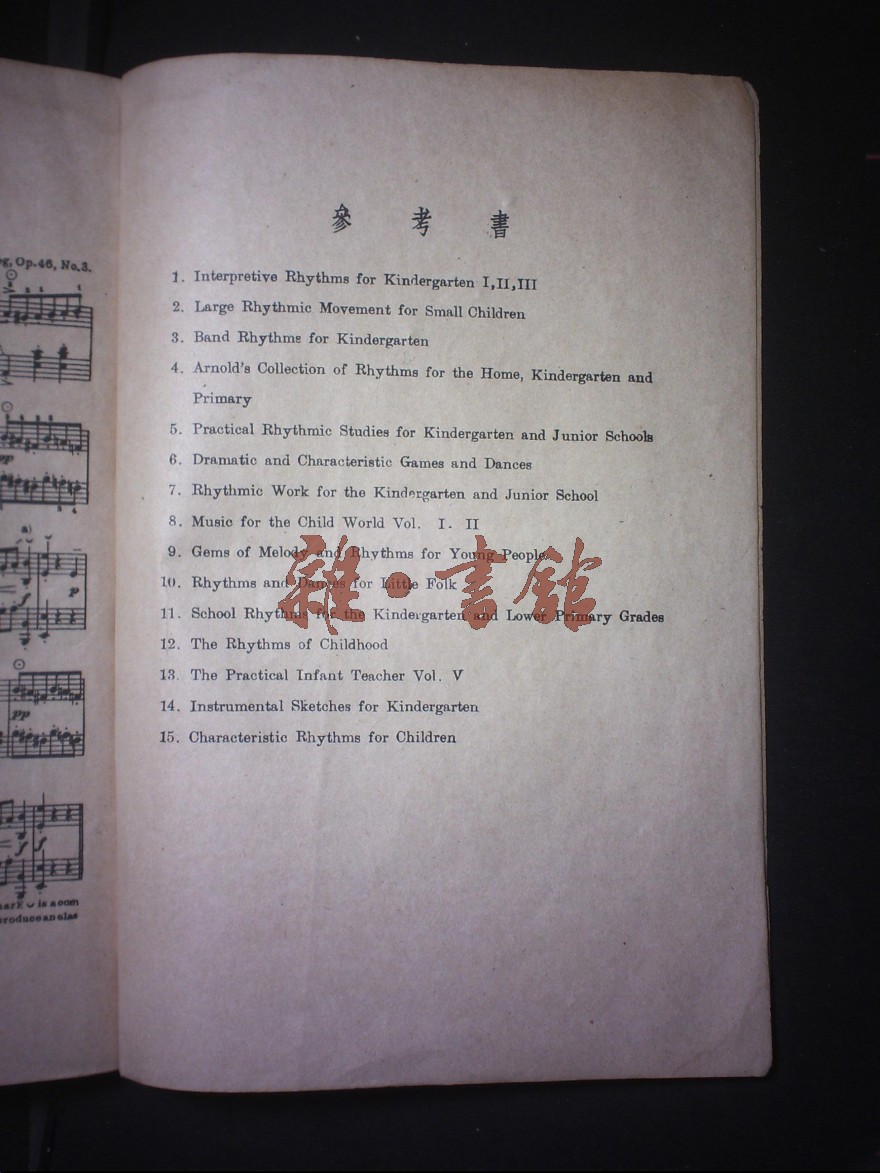 g, Op.46, No.3.
a)
pp
p
pp
f f
is a com
roduce an elas
參考書
1. Interpretive Rhythms for Kindergarten I,II,III
2. Large Rhythmic Movement for Small Children
3. Band Rhythms for Kindergarten
4. Arnold's Collection of Rhythms for the Home, Kindergarten and
Primary
5. Practical Rhythmic Studies for Kindergarten and Junior Schools
6. Dramatic and Characteristic Games and Dances
7. Rhythmic Work for the Kindergarten and Junior School
8. Music for the Child World Vol. I. II
9. Gems of Melody and Rhythms for Young People
10. Rhythms and Dances for Little Folk
11. School Rhythms for the Kindergarten and Lower Primary Grades
12. The Rhythms of Childhood
13. The Practical Infant Teacher Vol. V
14. Instrumental Sketches for Kindergarten
15. Characteristic Rhythms for Children
雜·書館